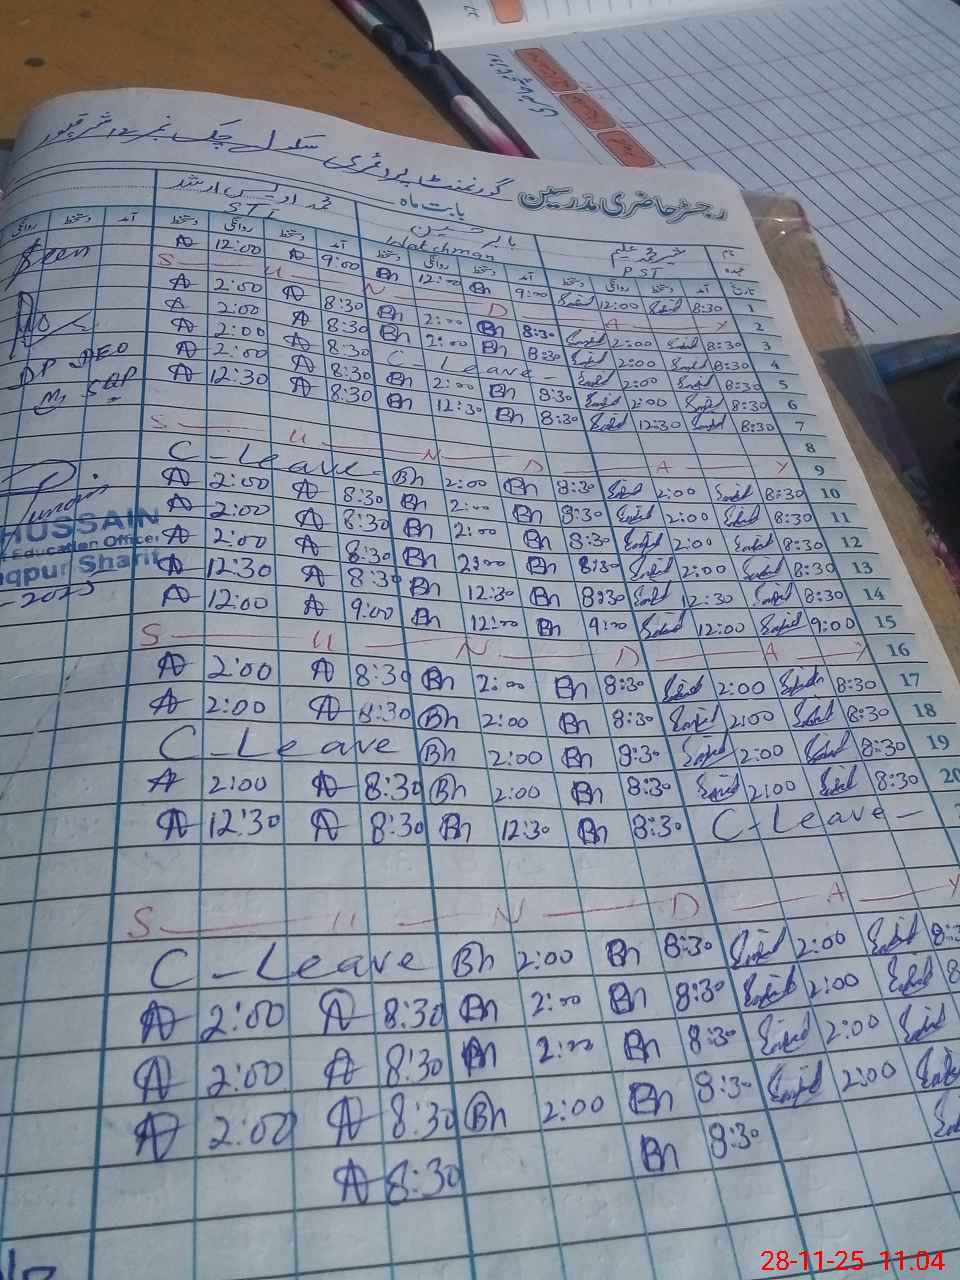 گورنمنٹ پرائمری سکول چک نمبر
رجسٹر حاضری مدرسین
بابت ماہ
محمد اویس ارشد
STI
Watchman
PST
نام
عہدہ
تاریخ آمد دستخط روانگی دستخط آمد دستخط روانگی دستخط آمد دستخط روانگی دستخط آمد دستخط روانگی
Seen
A 12:00 A 9:00 Bn 12:00 Bn 9:00 12:00 8:30 1
S U N D A Y 2
A 2:00 A 8:30 Bn 2:00 Bn 8:30 2:00 8:30 3
A 2:00 A 8:30 Bn 2:00 Bn 8:30 2:00 8:30 4
A 2:00 A 8:30 C - Leave - 2:00 8:30 5
A 2:00 A 8:30 Bn 2:00 Bn 8:30 2:00 8:30 6
A 12:30 A 8:30 Bn 12:30 Bn 8:30 12:30 8:30 7
8
S U N D A Y 9
C - Leave - Bn 2:00 Bn 8:30 2:00 8:30 10
A 2:00 A 8:30 Bn 2:00 Bn 8:30 2:00 8:30 11
A 2:00 A 8:30 Bn 2:00 Bn 8:30 2:00 8:30 12
A 2:00 A 8:30 Bn 2:00 Bn 8:30 2:00 8:30 13
A 12:30 A 8:30 Bn 12:30 Bn 8:30 12:30 8:30 14
A 12:00 A 9:00 Bn 12:00 Bn 9:00 12:00 9:00 15
S U N D A Y 16
A 2:00 A 8:30 Bn 2:00 Bn 8:30 2:00 8:30 17
A 2:00 A 8:30 Bn 2:00 Bn 8:30 2:00 8:30 18
C - Leave Bn 2:00 Bn 8:30 2:00 8:30 19
A 2:00 A 8:30 Bn 2:00 Bn 8:30 2:00 8:30 20
A 12:30 A 8:30 Bn 12:30 Bn 8:30 C - Leave -
S U N D A Y
C - Leave Bn 2:00 Bn 8:30 2:00
A 2:00 A 8:30 Bn 2:00 Bn 8:30 2:00
A 2:00 A 8:30 Bn 2:00 Bn 8:30 2:00
A 2:00 A 8:30 Bn 2:00 Bn 8:30 2:00
A 8:30 Bn 8:30
HUSSAIN
Education Officer
Sharif
2025
28-11-25 11.04